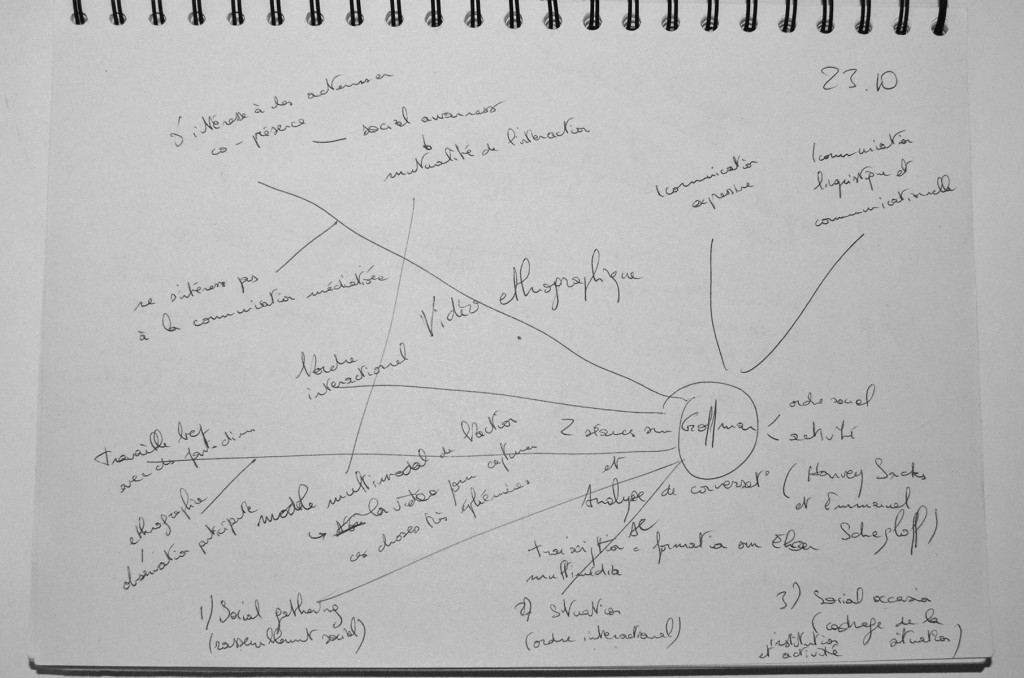 23.10
S'intéresse à des acteurs en
co-présence
social awareness
mutualité de l'interaction
communication
expressive
communication
linguistique et
communicationnelle
ne s'intéresse pas
à la communication médiatisée
Vidéo ethnographique
l'ordre
interactionnel
2 séances sur
Goffman
ordre social
activité
Travaille bcp
avec des
et
Analyse de conversat°
(Harvey Sacks
et Emmanuel
Schegloff)
ethnographie
observation participante
modèle multimodal de l'action
la vidéo pour capturer
ces choses très éphémères
AC
formation
multimédia
1) Social gathering
(rassemblement social)
2) Situation
(ordre interactionnel)
3) Social occasion
(cadrage de la
situation)
institution
et activité